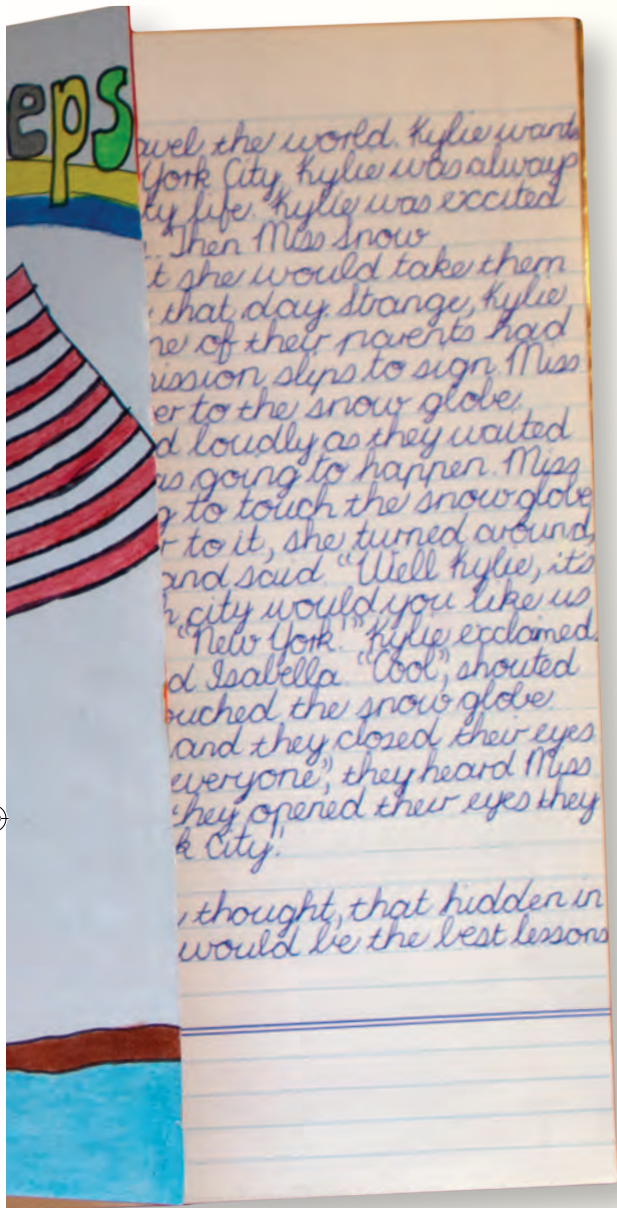 eps
avel the world. Kylie wants
York City, Kylie was always
ty life. Kylie was excited
. Then Miss Snow
t she would take them
that day. Strange, Kylie
ne of their parents had
ission slips to sign. Miss
er to the snow globe.
d loudly as they waited
as going to happen. Miss
g to touch the snow globe
r to it, she turned around,
and said. "Well Kylie, it's
h city would you like us
"New York!" Kylie exclaimed.
d Isabella. "Cool", shouted
ouched the snow globe
and they closed their eyes
everyone", they heard Miss
they opened their eyes they
k City!
thought, that hidden in
would be the best lessons